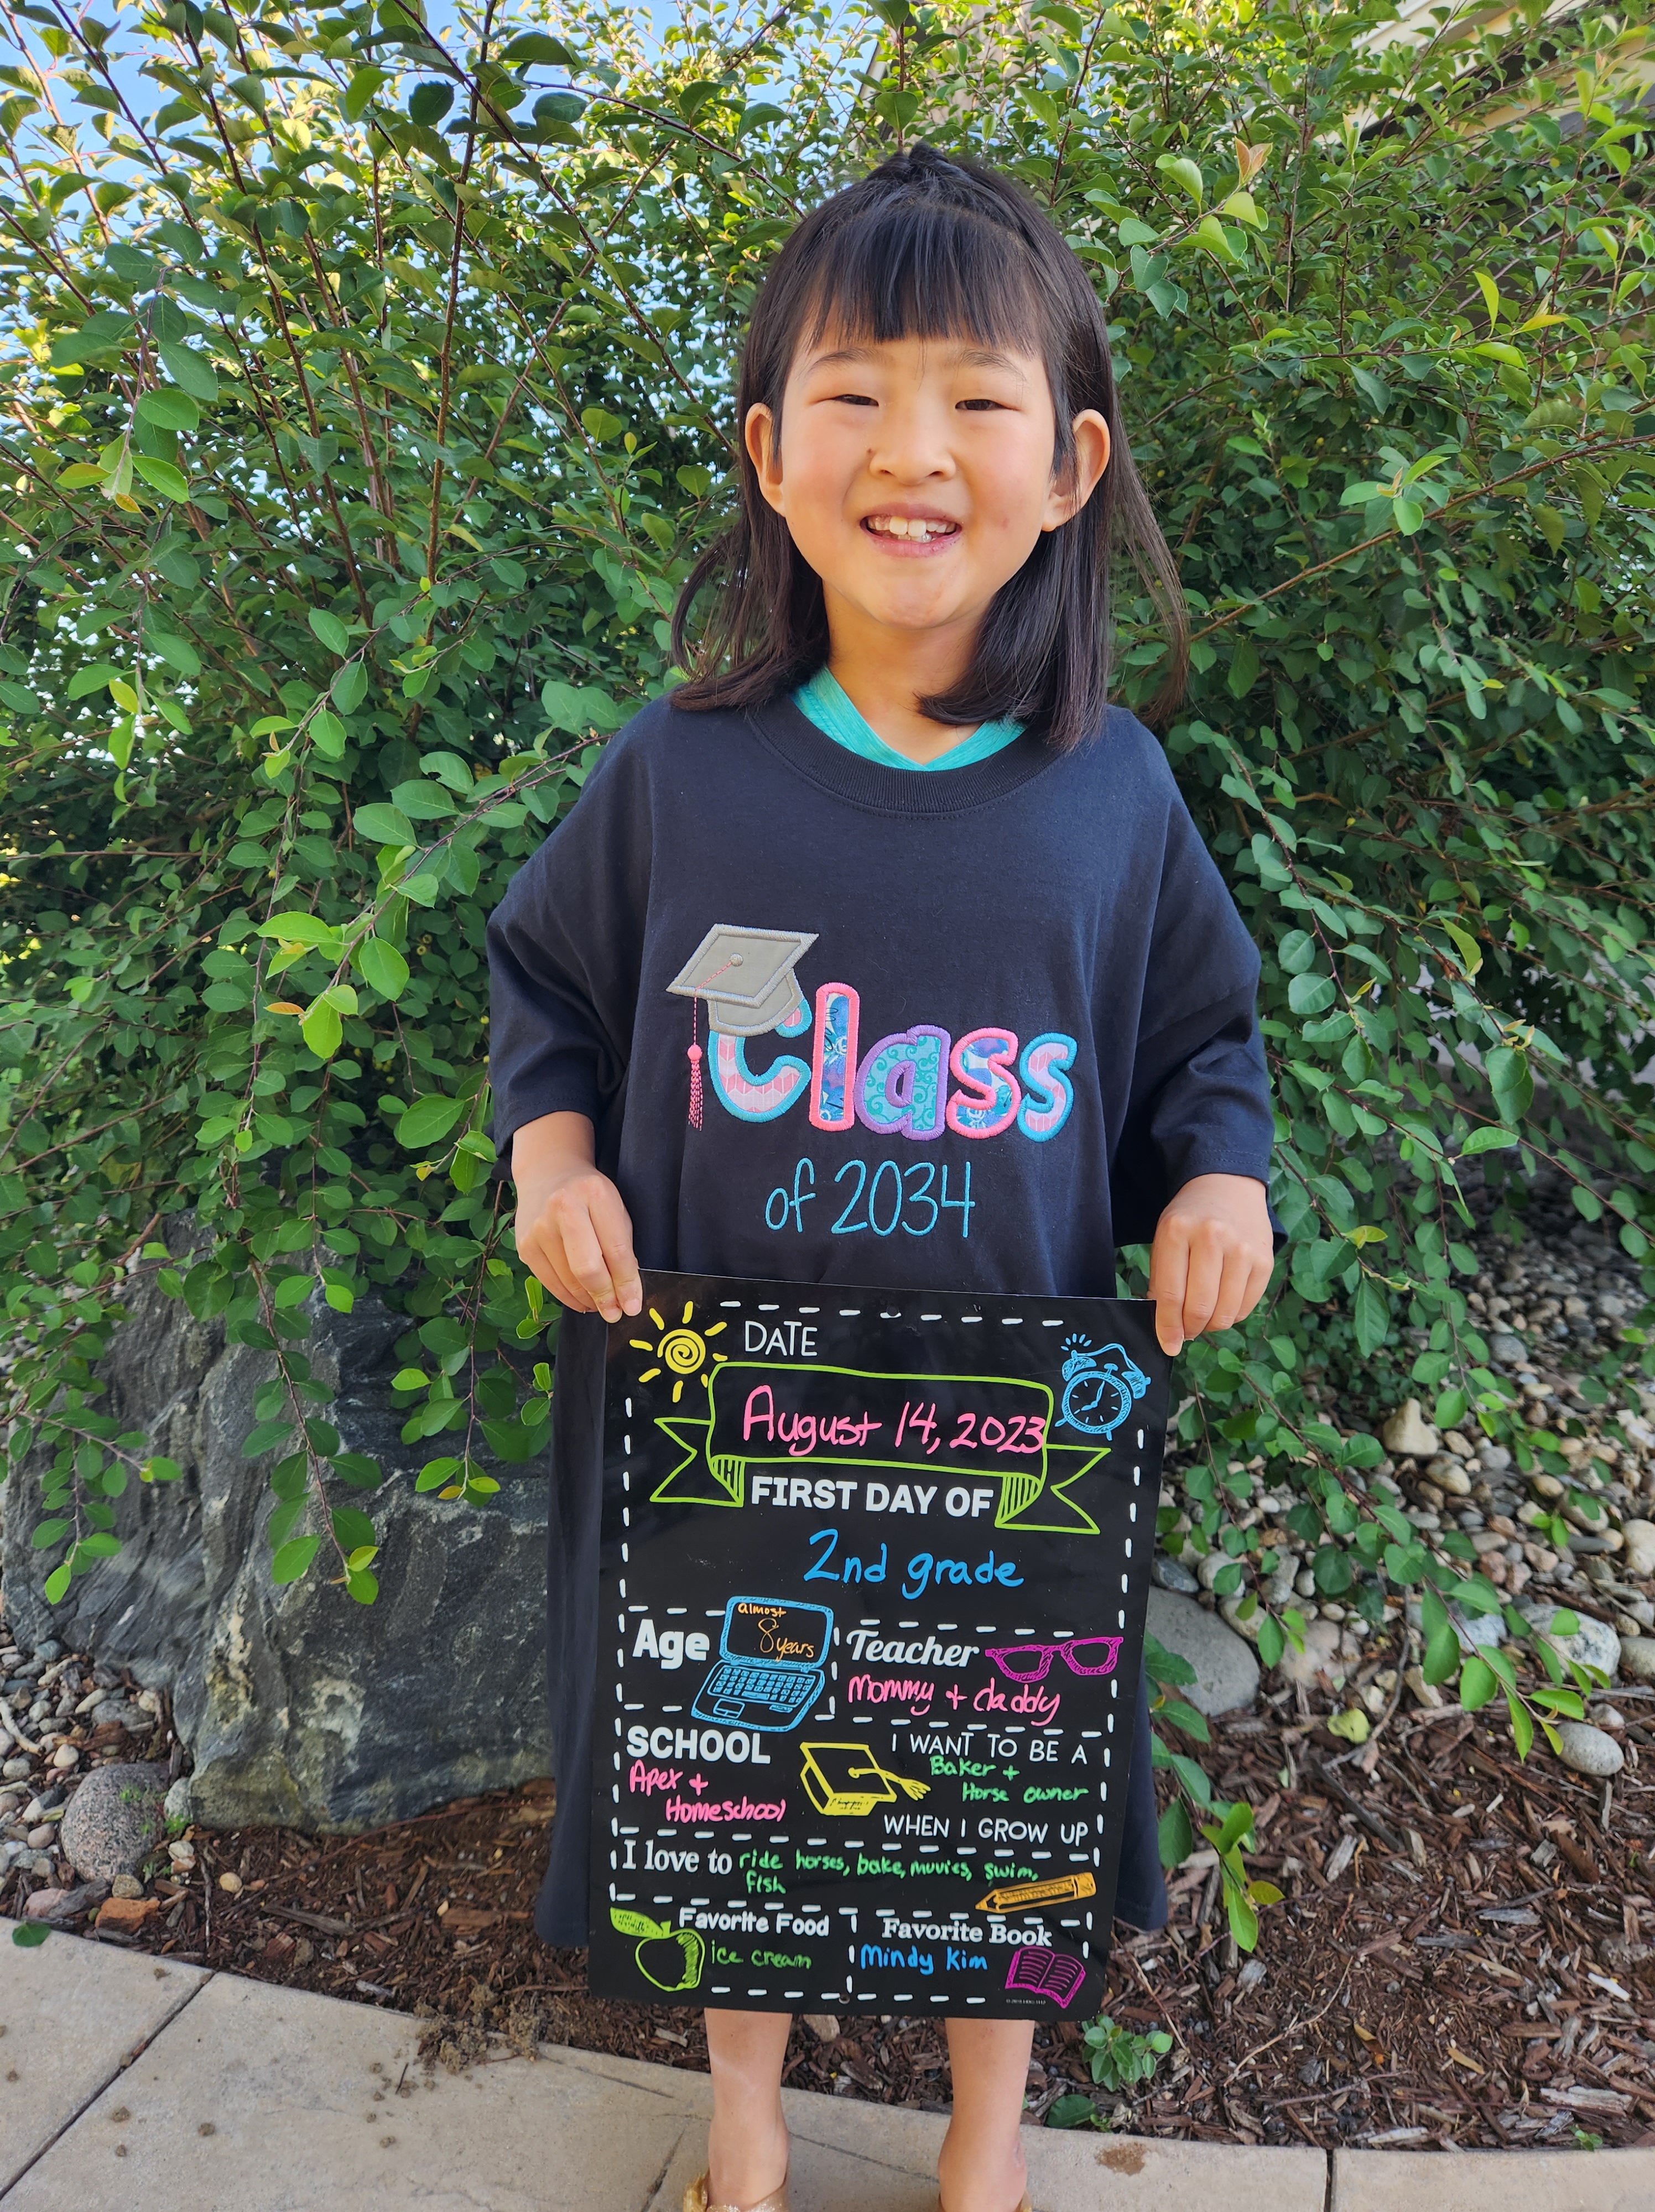 Class
of 2034
DATE
August 14, 2023
FIRST DAY OF
2nd grade
almost
8 years
Age
Teacher
Mommy + daddy
SCHOOL
Apex +
Homeschool
I WANT TO BE A
Baker +
Horse owner
WHEN I GROW UP
I love to ride horses, bake, movies, swim,
fish
Favorite Food
ice cream
Favorite Book
Mindy Kim